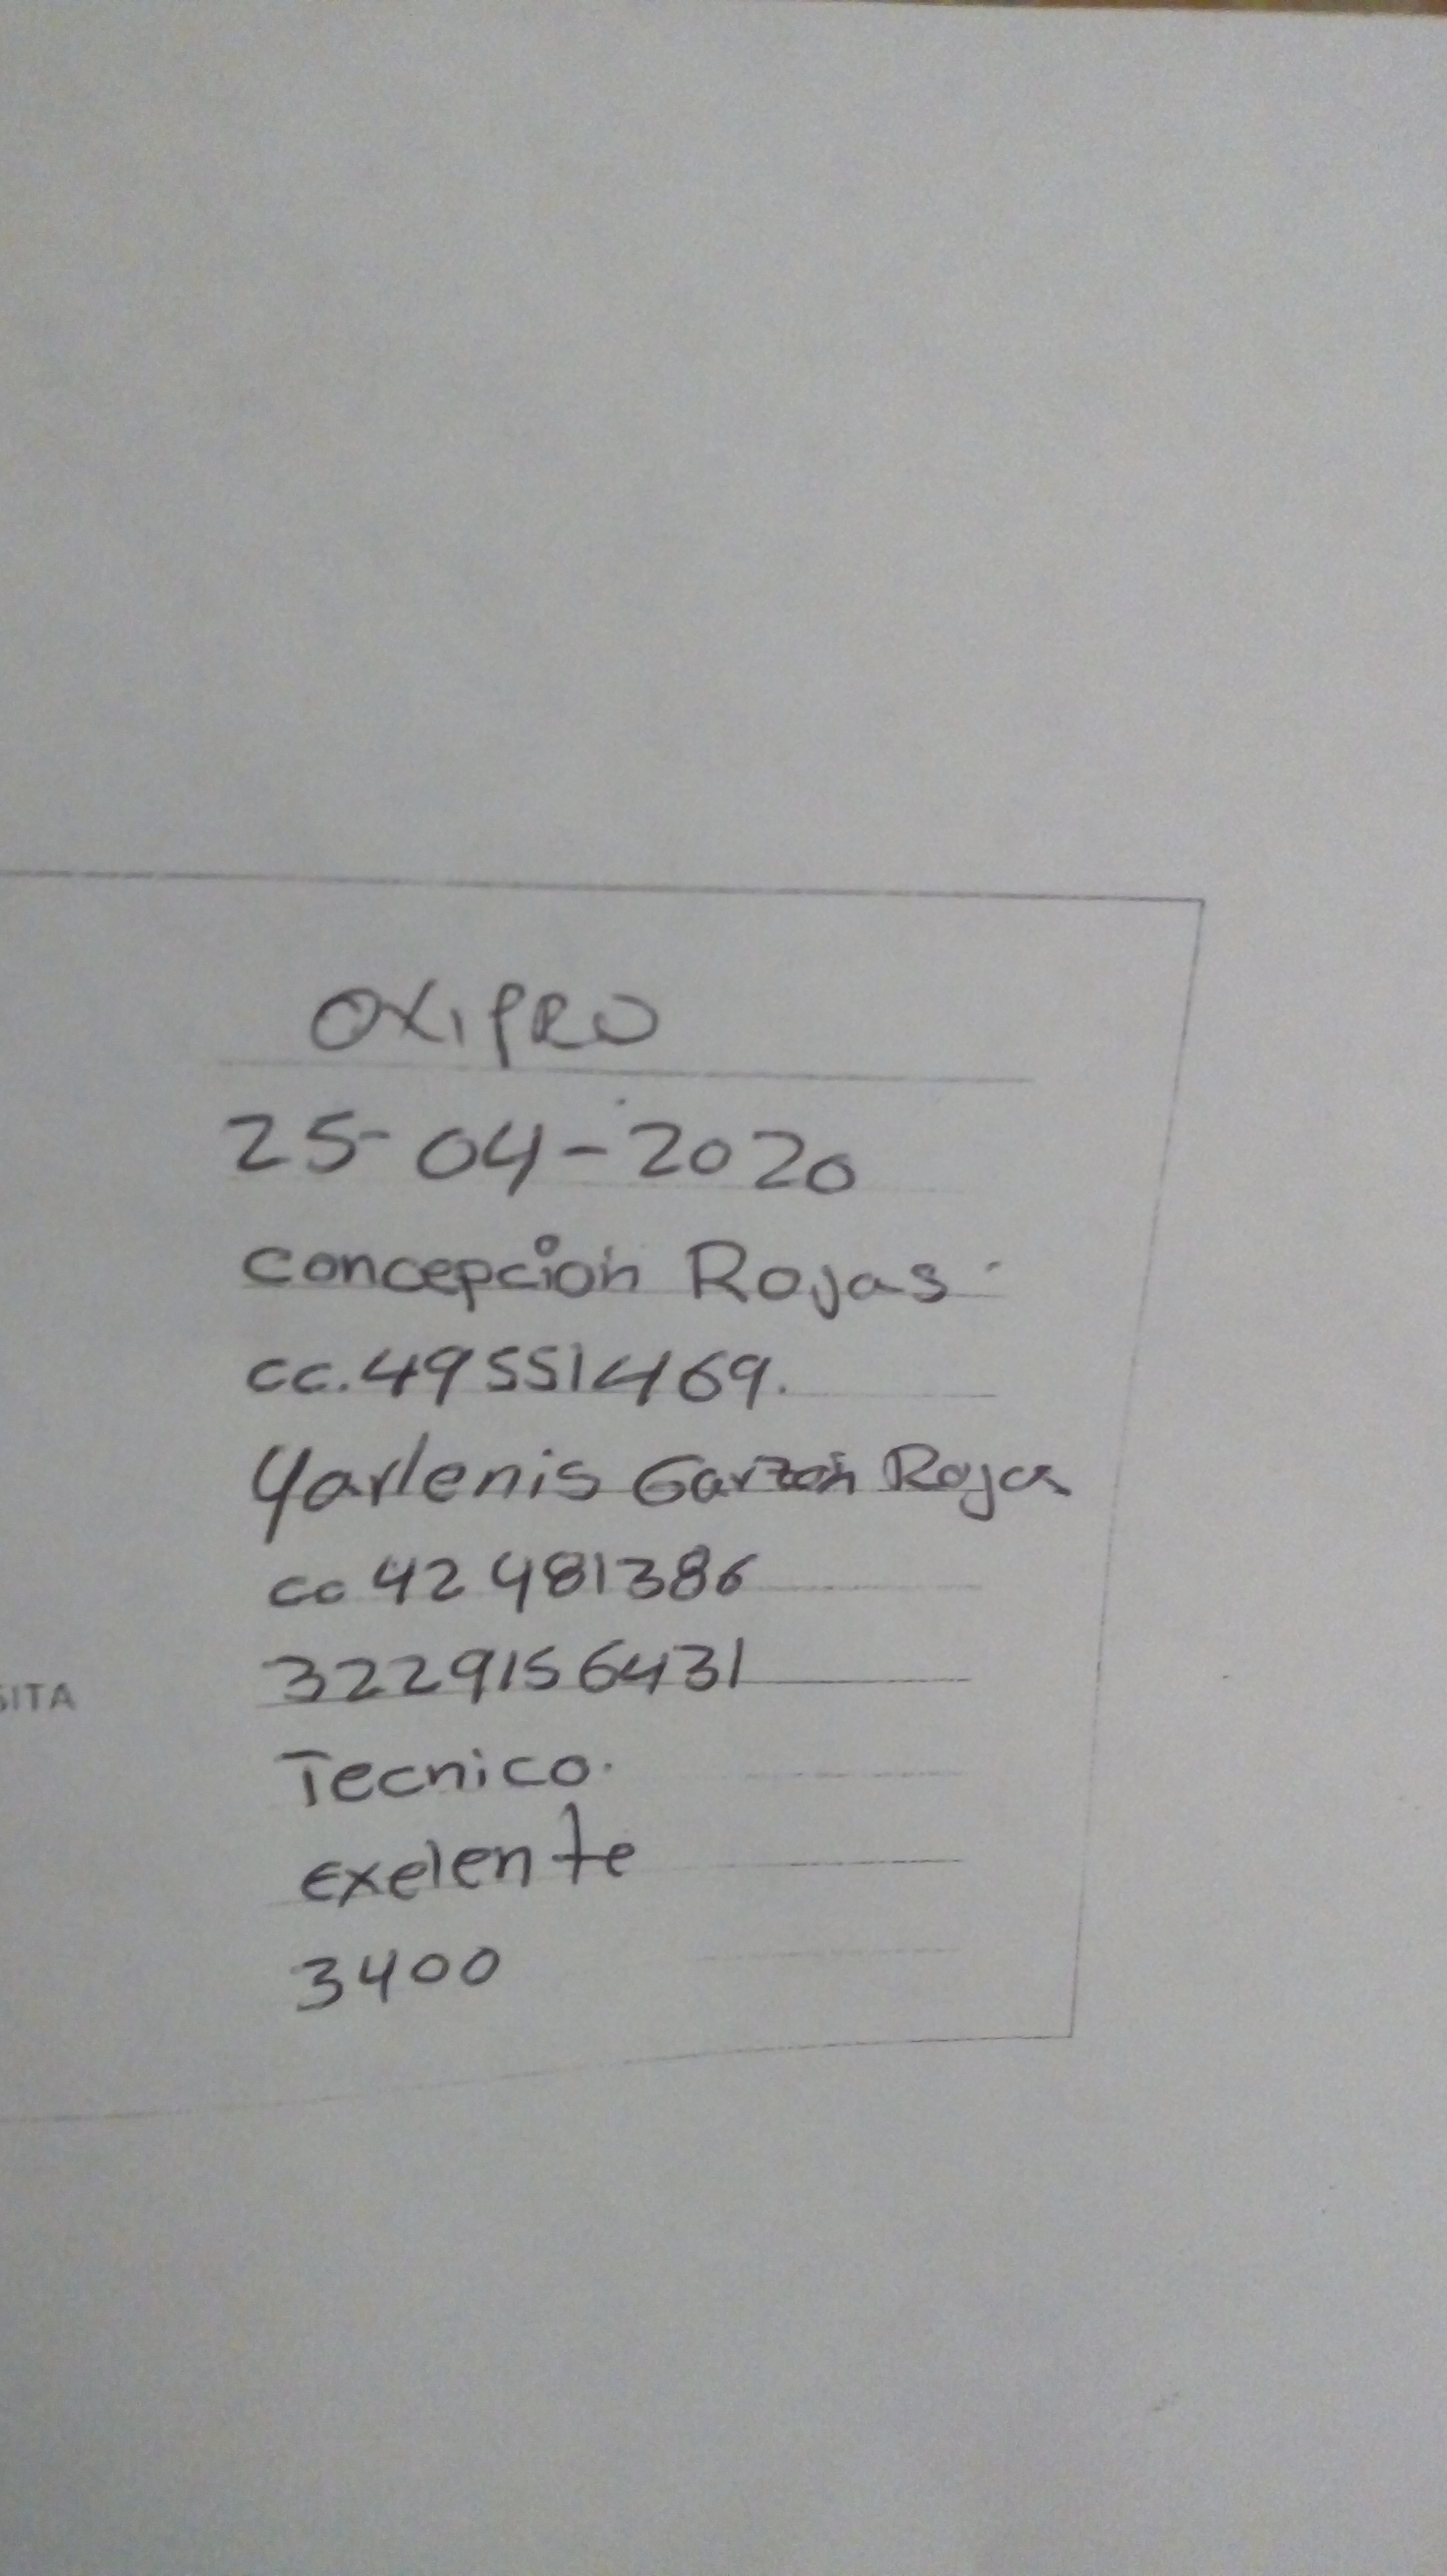 OXIPRO
25-04-2020
concepcion Rojas.
cc.49551469.
Yarlenis Garzón Rojas
cc 42481386
3229156431
SITA
Tecnico.
Exelente
3400